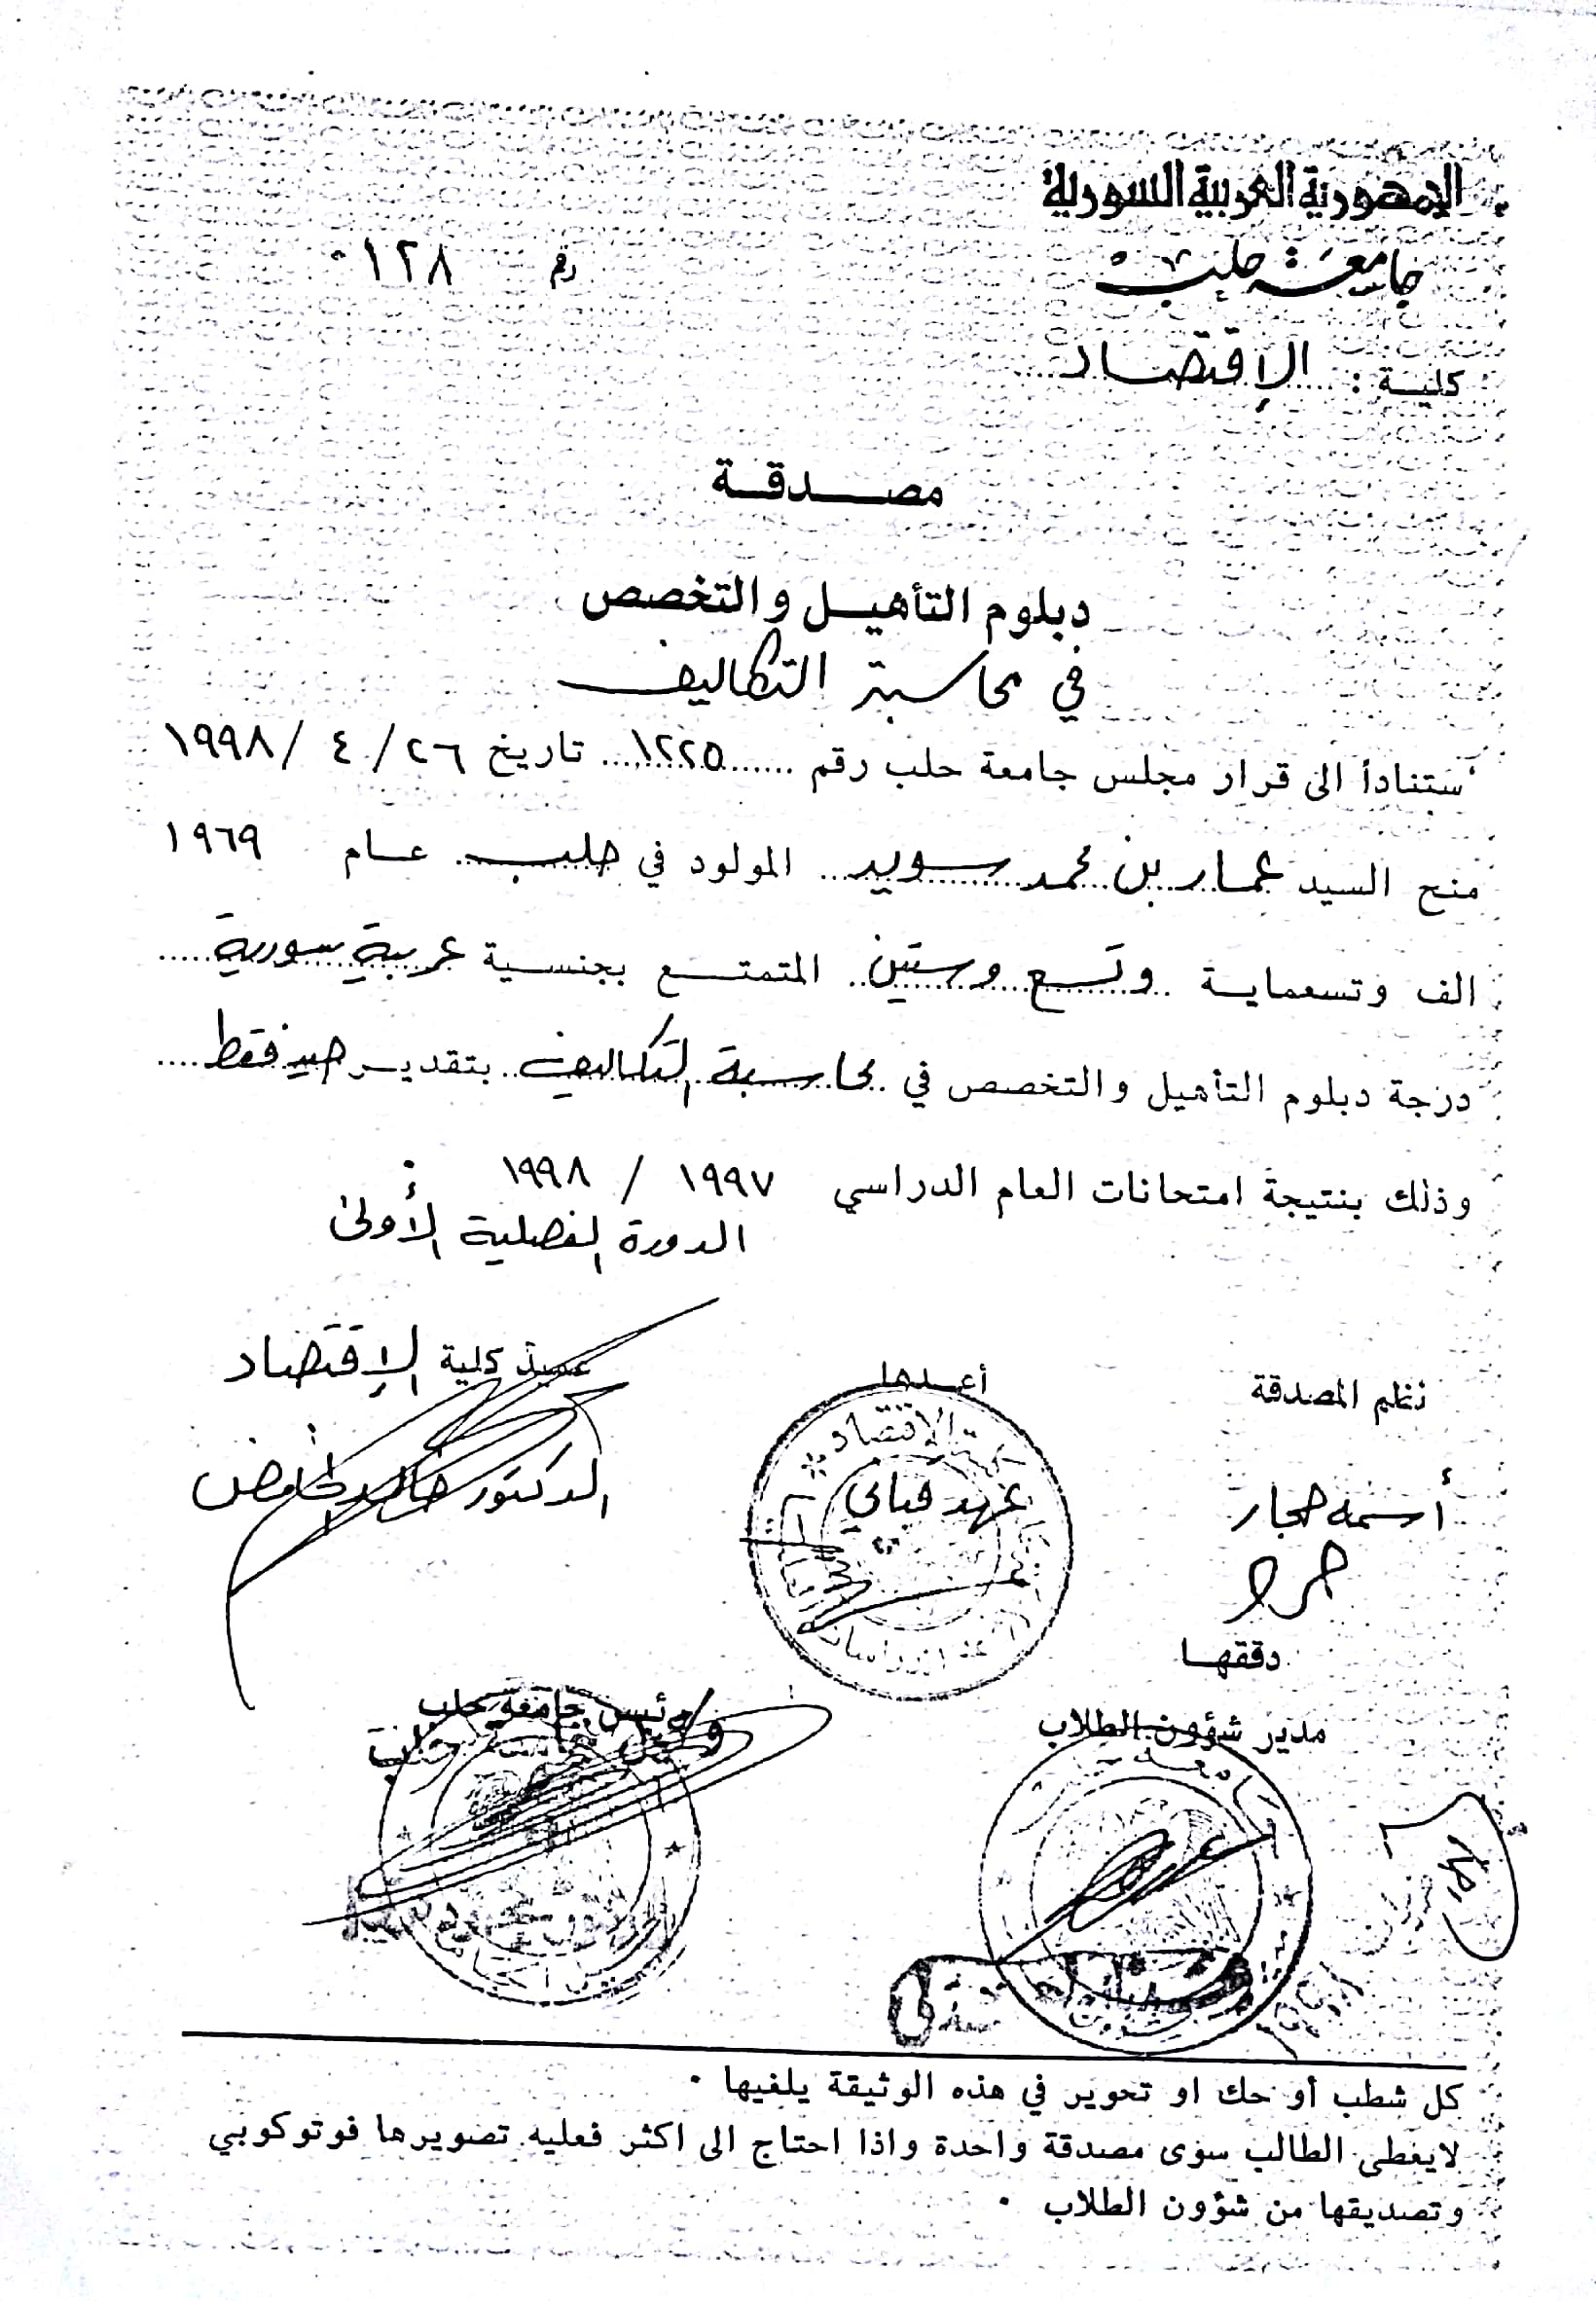 الجمهورية العربية السورية
جامعة حلب
رقم ٠١٢٨
كلية : الإقتصاد
مصدقة
دبلوم التأهيل والتخصص
في محاسبة التكاليف
ستناداً الى قرار مجلس جامعة حلب رقم ١٢٢٥ تاريخ ٢٦ / ٤ / ١٩٩٨
منح السيد عمار بن محمد سويد المولود في حلب عام ١٩٦٩
الف وتسعماية وتسع وستين المتمتع بجنسية عربية سورية
درجة دبلوم التأهيل والتخصص في محاسبة التكاليف بتقدير جيد فقط
وذلك بنتيجة امتحانات العام الدراسي ١٩٩٧ / ١٩٩٨
الدورة الفصلية الأولى
نظم المصدقة
أعدها
عميد كلية الإقتصاد
أسمه حجار
عهد قباني
الدكتور خالد الحامض
كلية الإقتصاد
دققها
مدير شؤون الطلاب
رئيس جامعة حلب
وكيل جامعة حلب
جامعة
كل شطب أو حك او تحوير في هذه الوثيقة يلغيها .
لايعطى الطالب سوى مصدقة واحدة واذا احتاج الى اكثر فعليه تصويرها فوتوكوبي
وتصديقها من شؤون الطلاب .